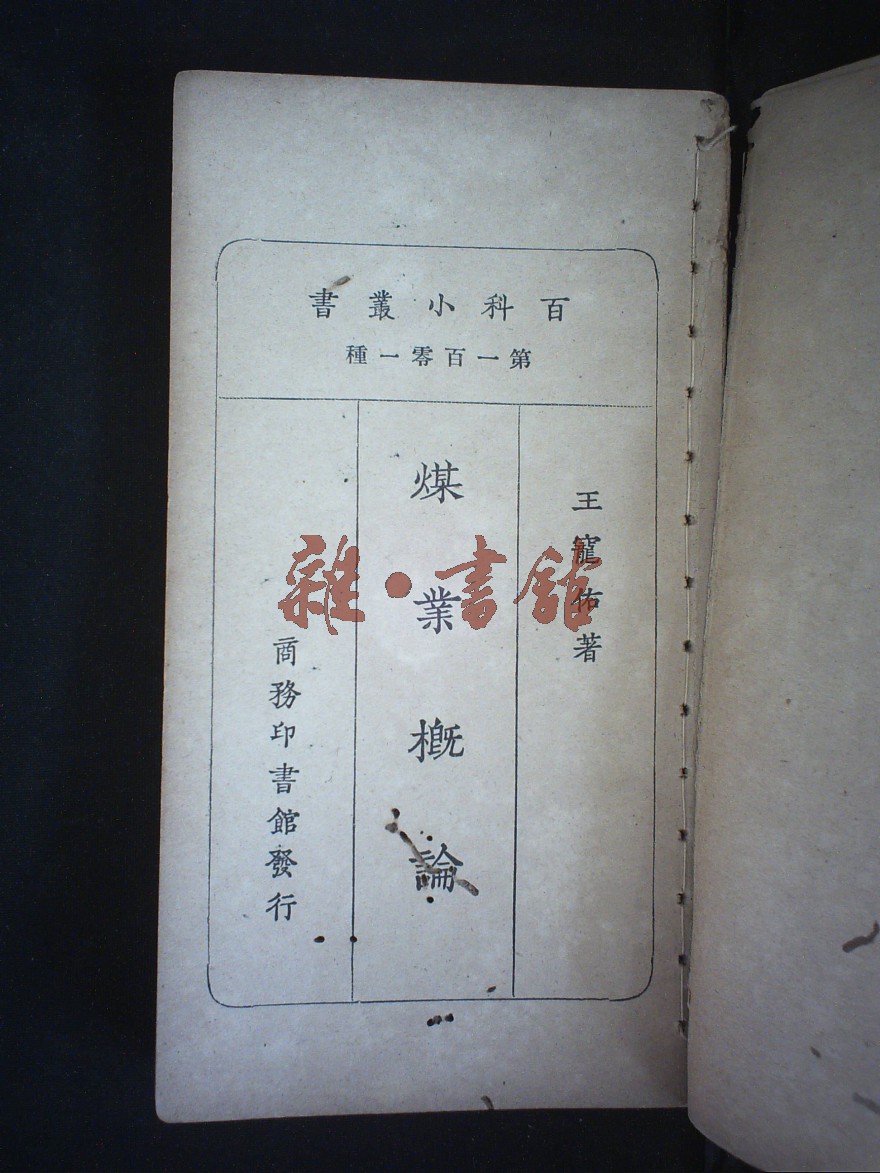 百科小叢書
第一百零一種
王寵佑著
煤業概論
商務印書館發行
雜·書館